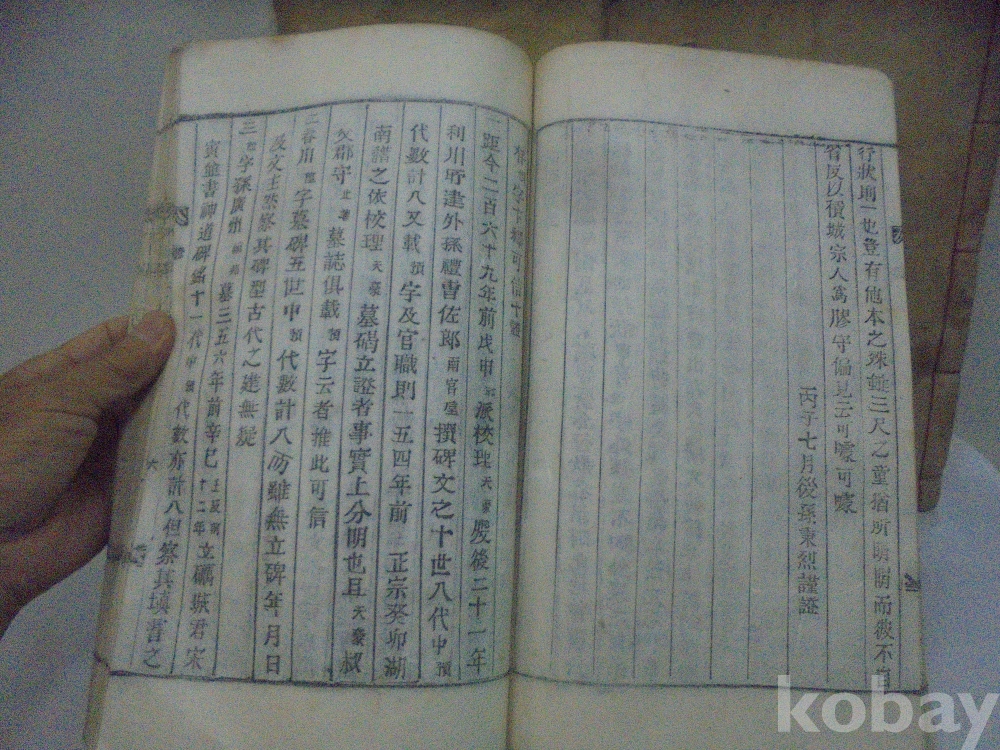 行狀則一也豈有他本之殊錘三尺之童猶所明膓而彼不自
省反以積城宗人爲膠守偏見云可噱可噱
丙子七月後孫秉烈謹證
字 可 十證
一距今二百六十九年前戊申 派校理天豪歿後二十一年
利川府建外孫禮曺佐郞雨官撰碑文之十世八代中預
代數計八又載預字及官職則一五四年前正宗癸卯湖
南譜之依校理天豪墓碣立證者事實上分明也且天豪叔
父郡守 墓誌俱載預字云者推此可信
二 字墓碑五世中預代數計八而雖無立碑年月日
及文主然察其碑型古代之建無疑
三 字孫廣 墓三五六年前辛巳 十二年立碣 君宋
寅 書神道碑銘十一代中預代數亦計八但察其 書之
kobay